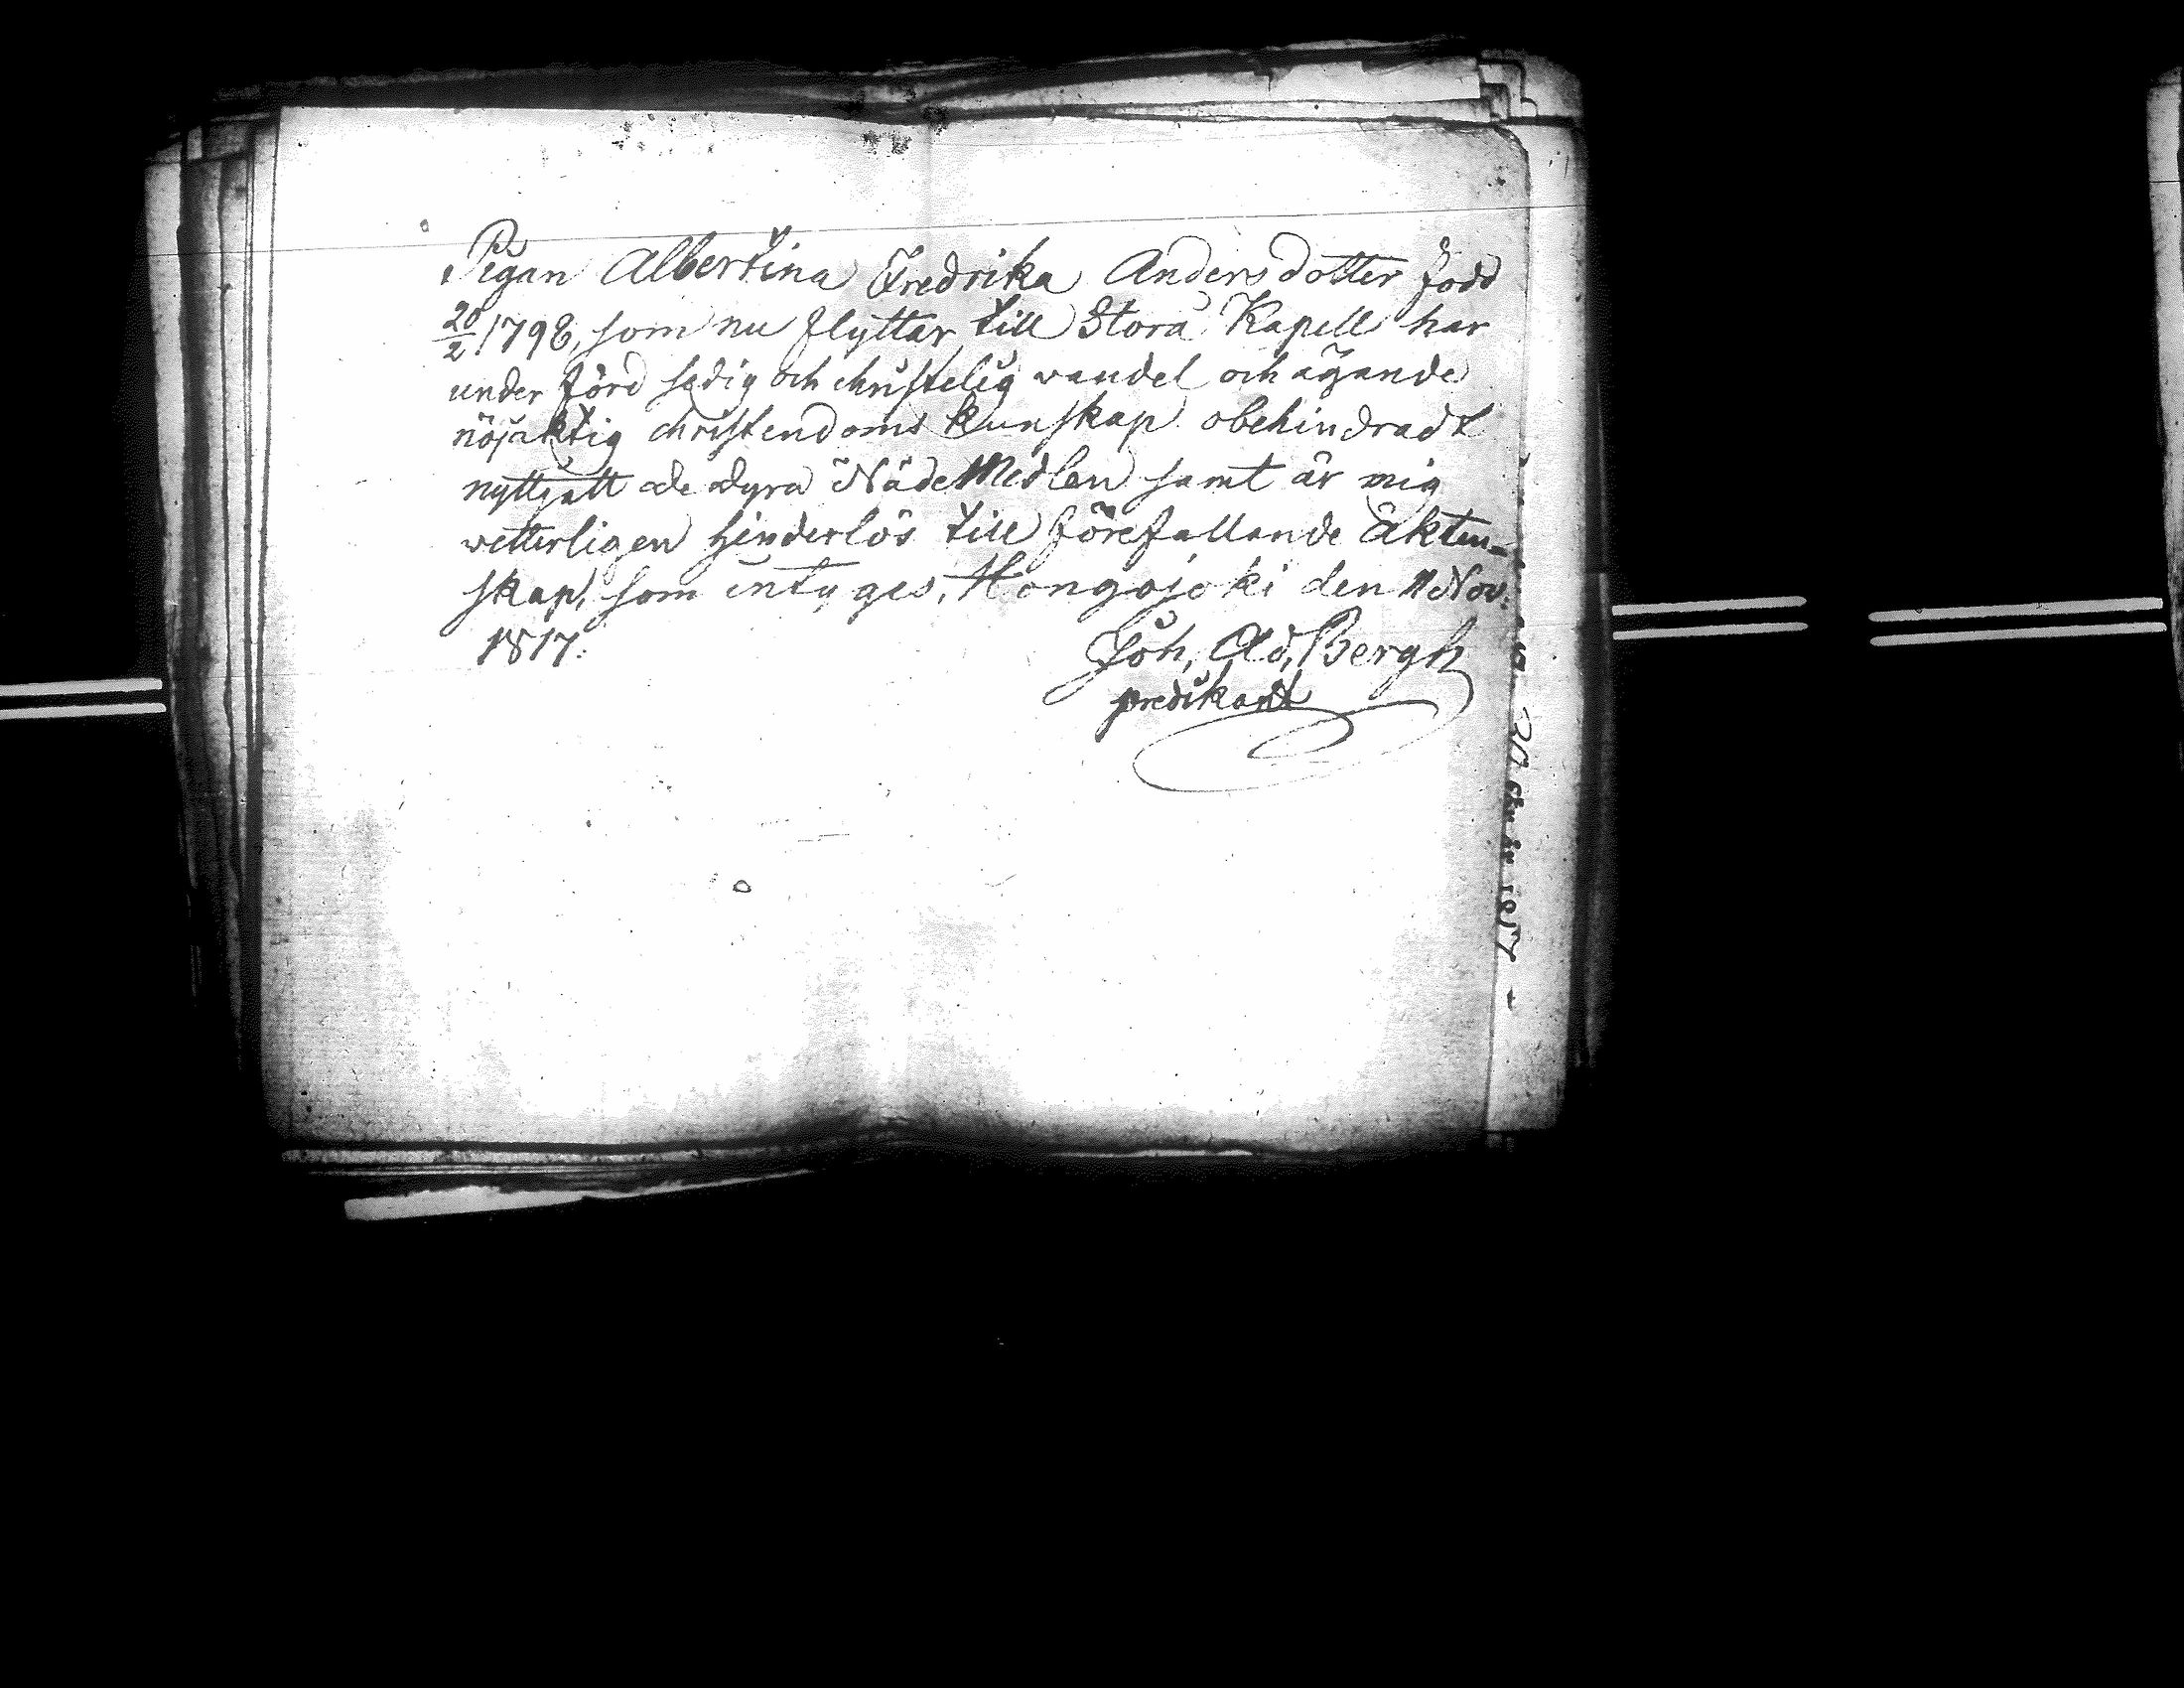 Pigan Albertina Fredrika Andersdotter född
20/2 1798, som nu flyttar till Storå Kapell har
under förd sedig och christelig vandel och ägande
nöjaktig christendoms kunskap obehindradt
nyttjatt de dyra NådeMedlen samt är mig
vetterligen hinderlös till förefallande äkten-
skap, som intyges, Hongojoki den 11 Nov:
1817.
Joh, Ad, Bergh
predikant
30 1817